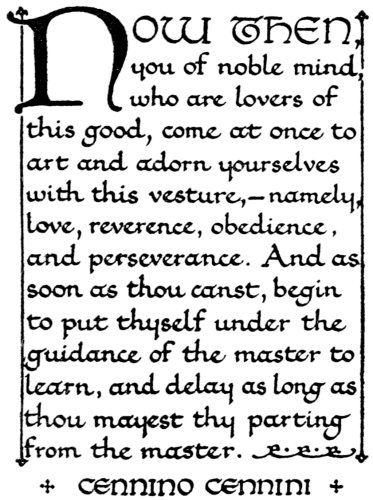 NOW THEN,
you of noble mind,
who are lovers of
this good, come at once to
art and adorn yourselves
with this vesture,—namely,
love, reverence, obedience,
and perseverance. And as
soon as thou canst, begin
to put thyself under the
guidance of the master to
learn, and delay as long as
thou mayest thy parting
from the master.
CENNINO CENNINI